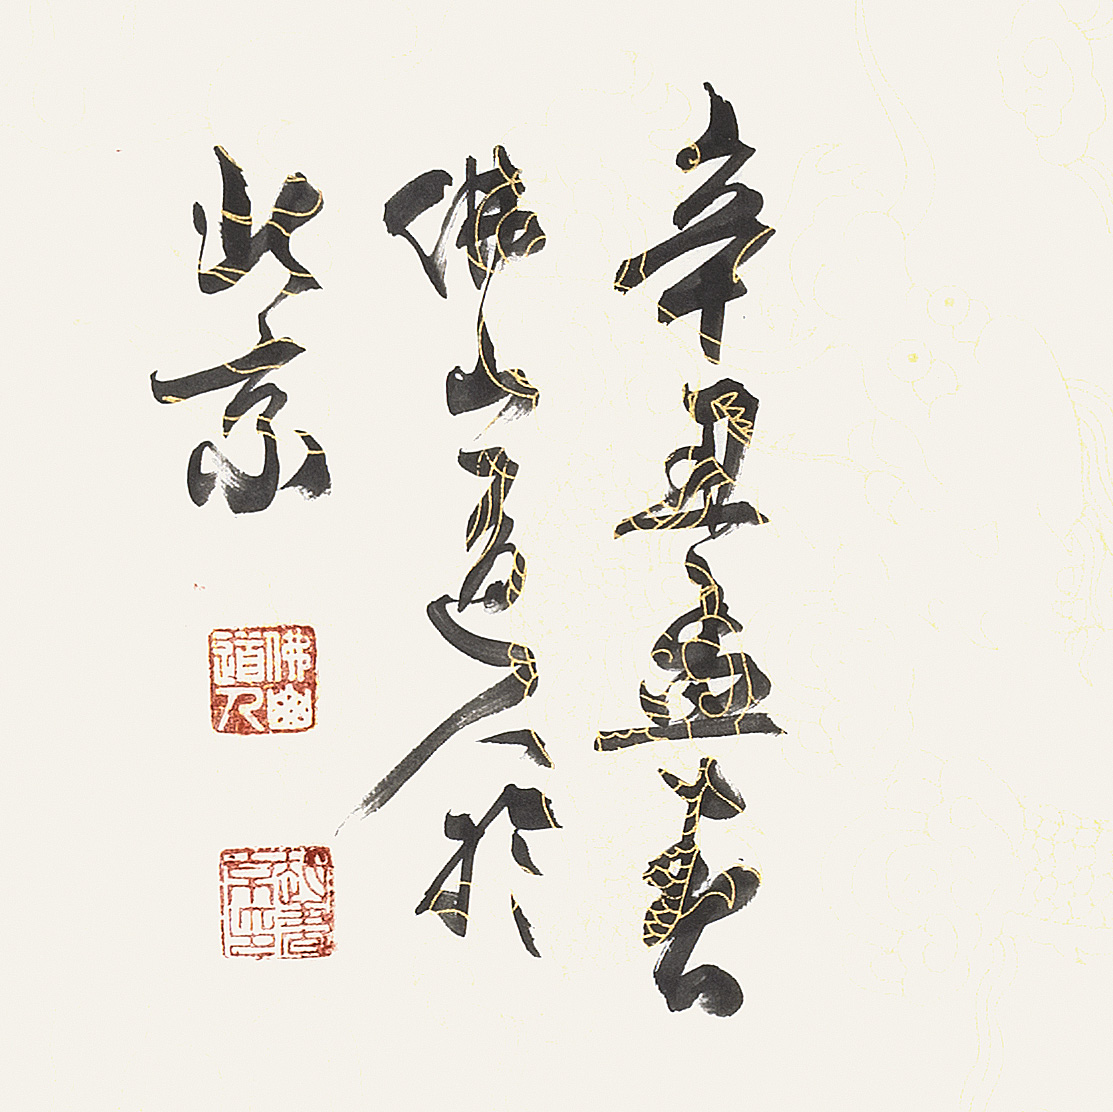 辛丑孟春
佛山道人於
北京
佛山道人